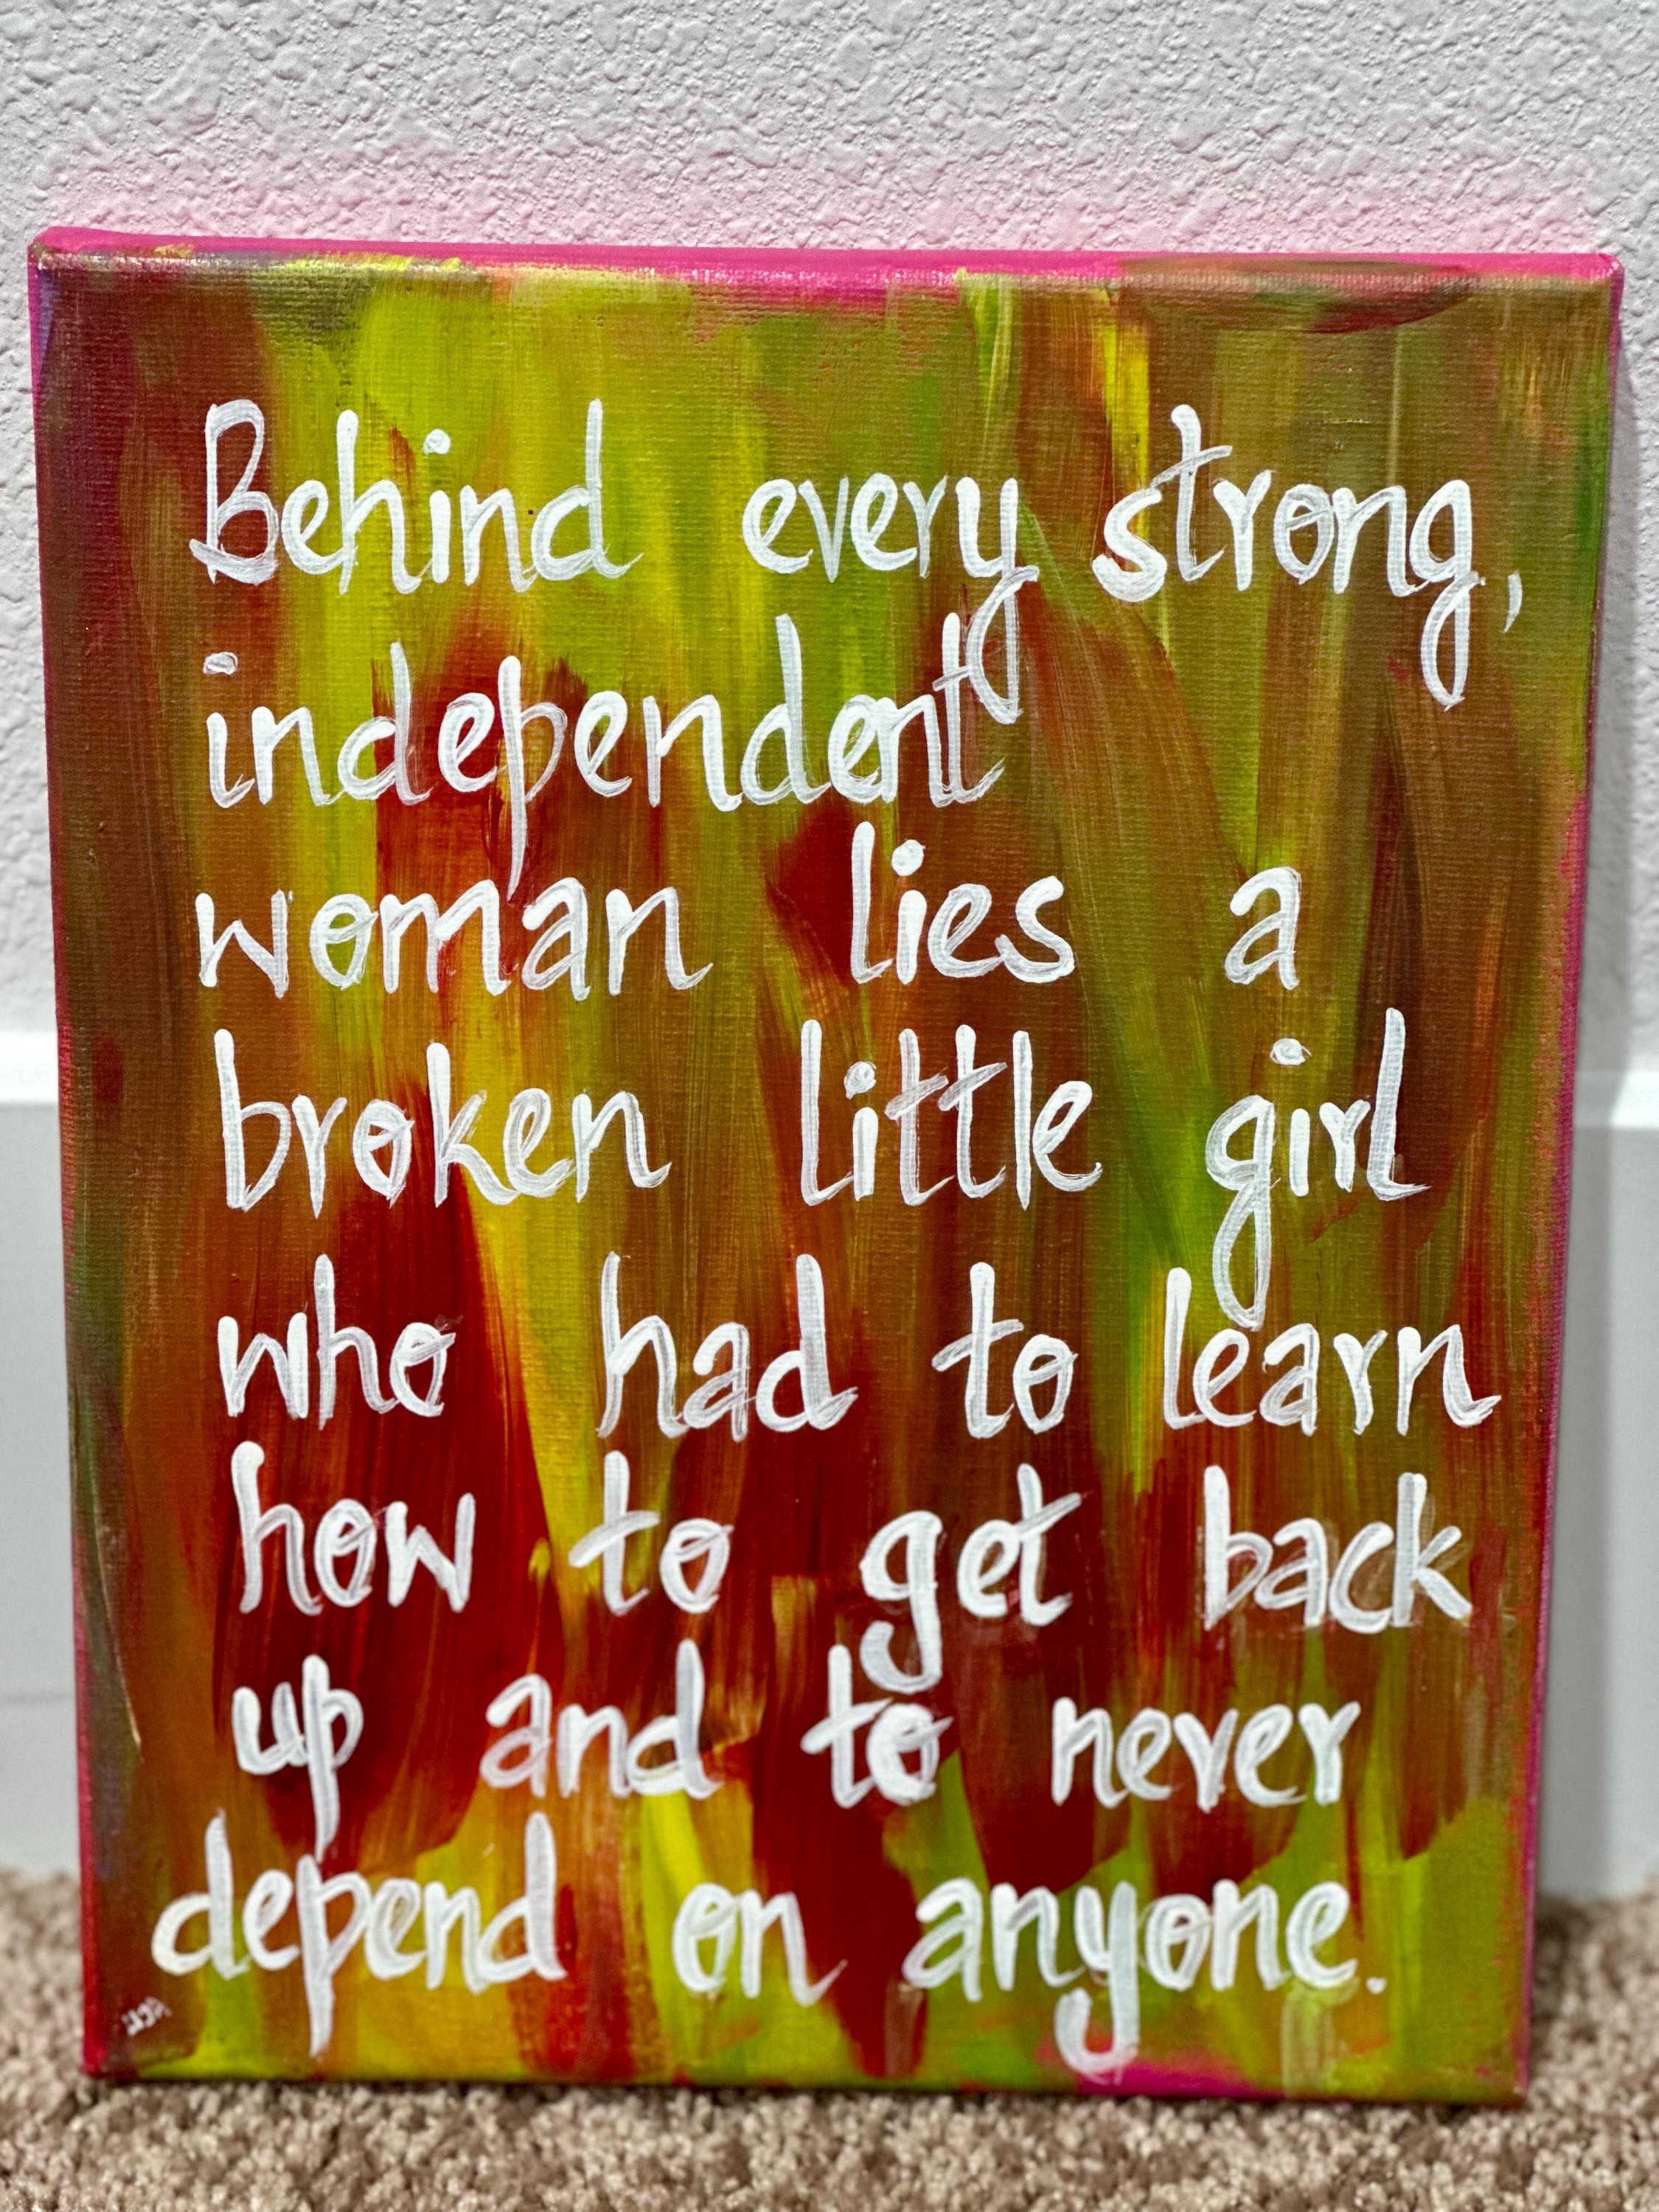 Behind every strong,
independent
woman lies a
broken little girl
who had to learn
how to get back
up and to never
depend on anyone.